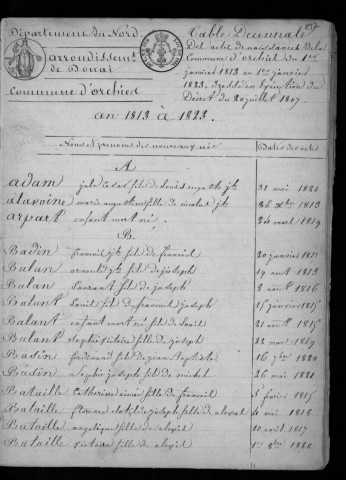 Département du Nord
arrondissem.t
de Douai
Commune d'orchies
Table Décennale
Des actes de naissance de la
Commune d'orchies du 1er
janvier 1813 au 1er janvier
1823, dressée en Exécution du
Décret du 20 juillet 1807.
an 1813 à 1823.
Noms et prénoms des nouveaux nés
Date des actes
A
adam jule César fils de Louis auguste jh 31 mai 1820
alavoine marie augustine fille de nicolas jh 1813
arpart enfant mort né 24 mars 1819
B.
Badin françois jh fils de françois 20 janvier
Balan arnould jh fils de joseph 19 août 1813
Balan Laurant fils de joseph 8 août 1816
Balant Louis fils de françois joseph 15 janvier 1815
Balant enfant mort né fils de Louis 21 août 1815
Balant Sophie victoire fille de joseph 22 mai 1819
Basin ferdinand fils de jean Baptiste 16 7bre 1820
Basin Sophie joseph fille de michel 26 mai 1821
Bataille Catherine aimée fille de françois 5 février 1815
Bataille florence clotilde joseph fille de alexis 4 mai 1818
Bataille angelique fille de alexis 10 avril 1817
Bataille victoire fille de alexis 1er 1820